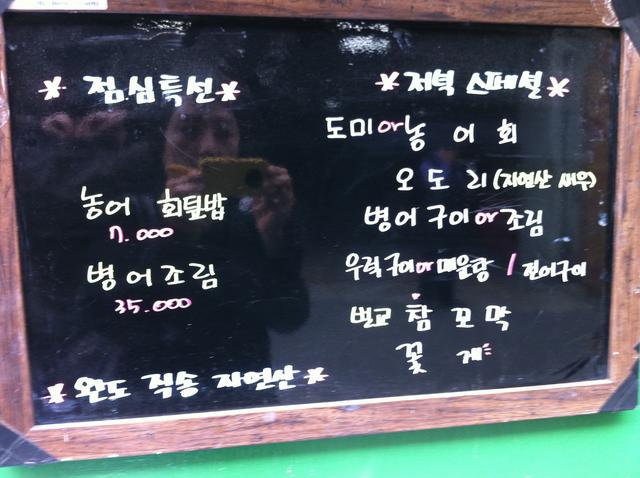 * 점심특선 *
농어 회덮밥
7.000
병어조림
35.000
* 완도 직송 자연산 *
* 저녁 스페셜 *
도미or농어회
오도리(자연산 새우)
병어구이or조림
우럭구이or매운탕 / 전어구이
벌교 참꼬막
꽃게